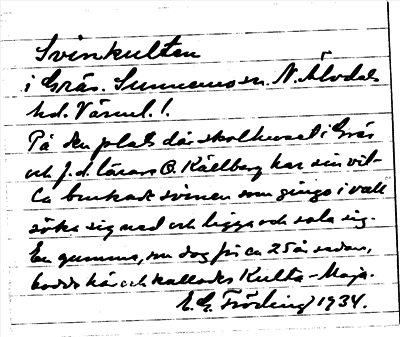 Svinkulten
i Grås. Sunnemo sn. N. Älvdals
hd. Värml. l.
På den plats där skolhuset i Grås
och f.d. lärare O. Källberg har sin vil-
la brukade svinen som gingo i vall
söka sig ned och ligga och sola sig.
En gumma, som dog för ca 25 år sedan,
bodde här och kallades Kulta-Maja.
E. G. Fröding 1934.